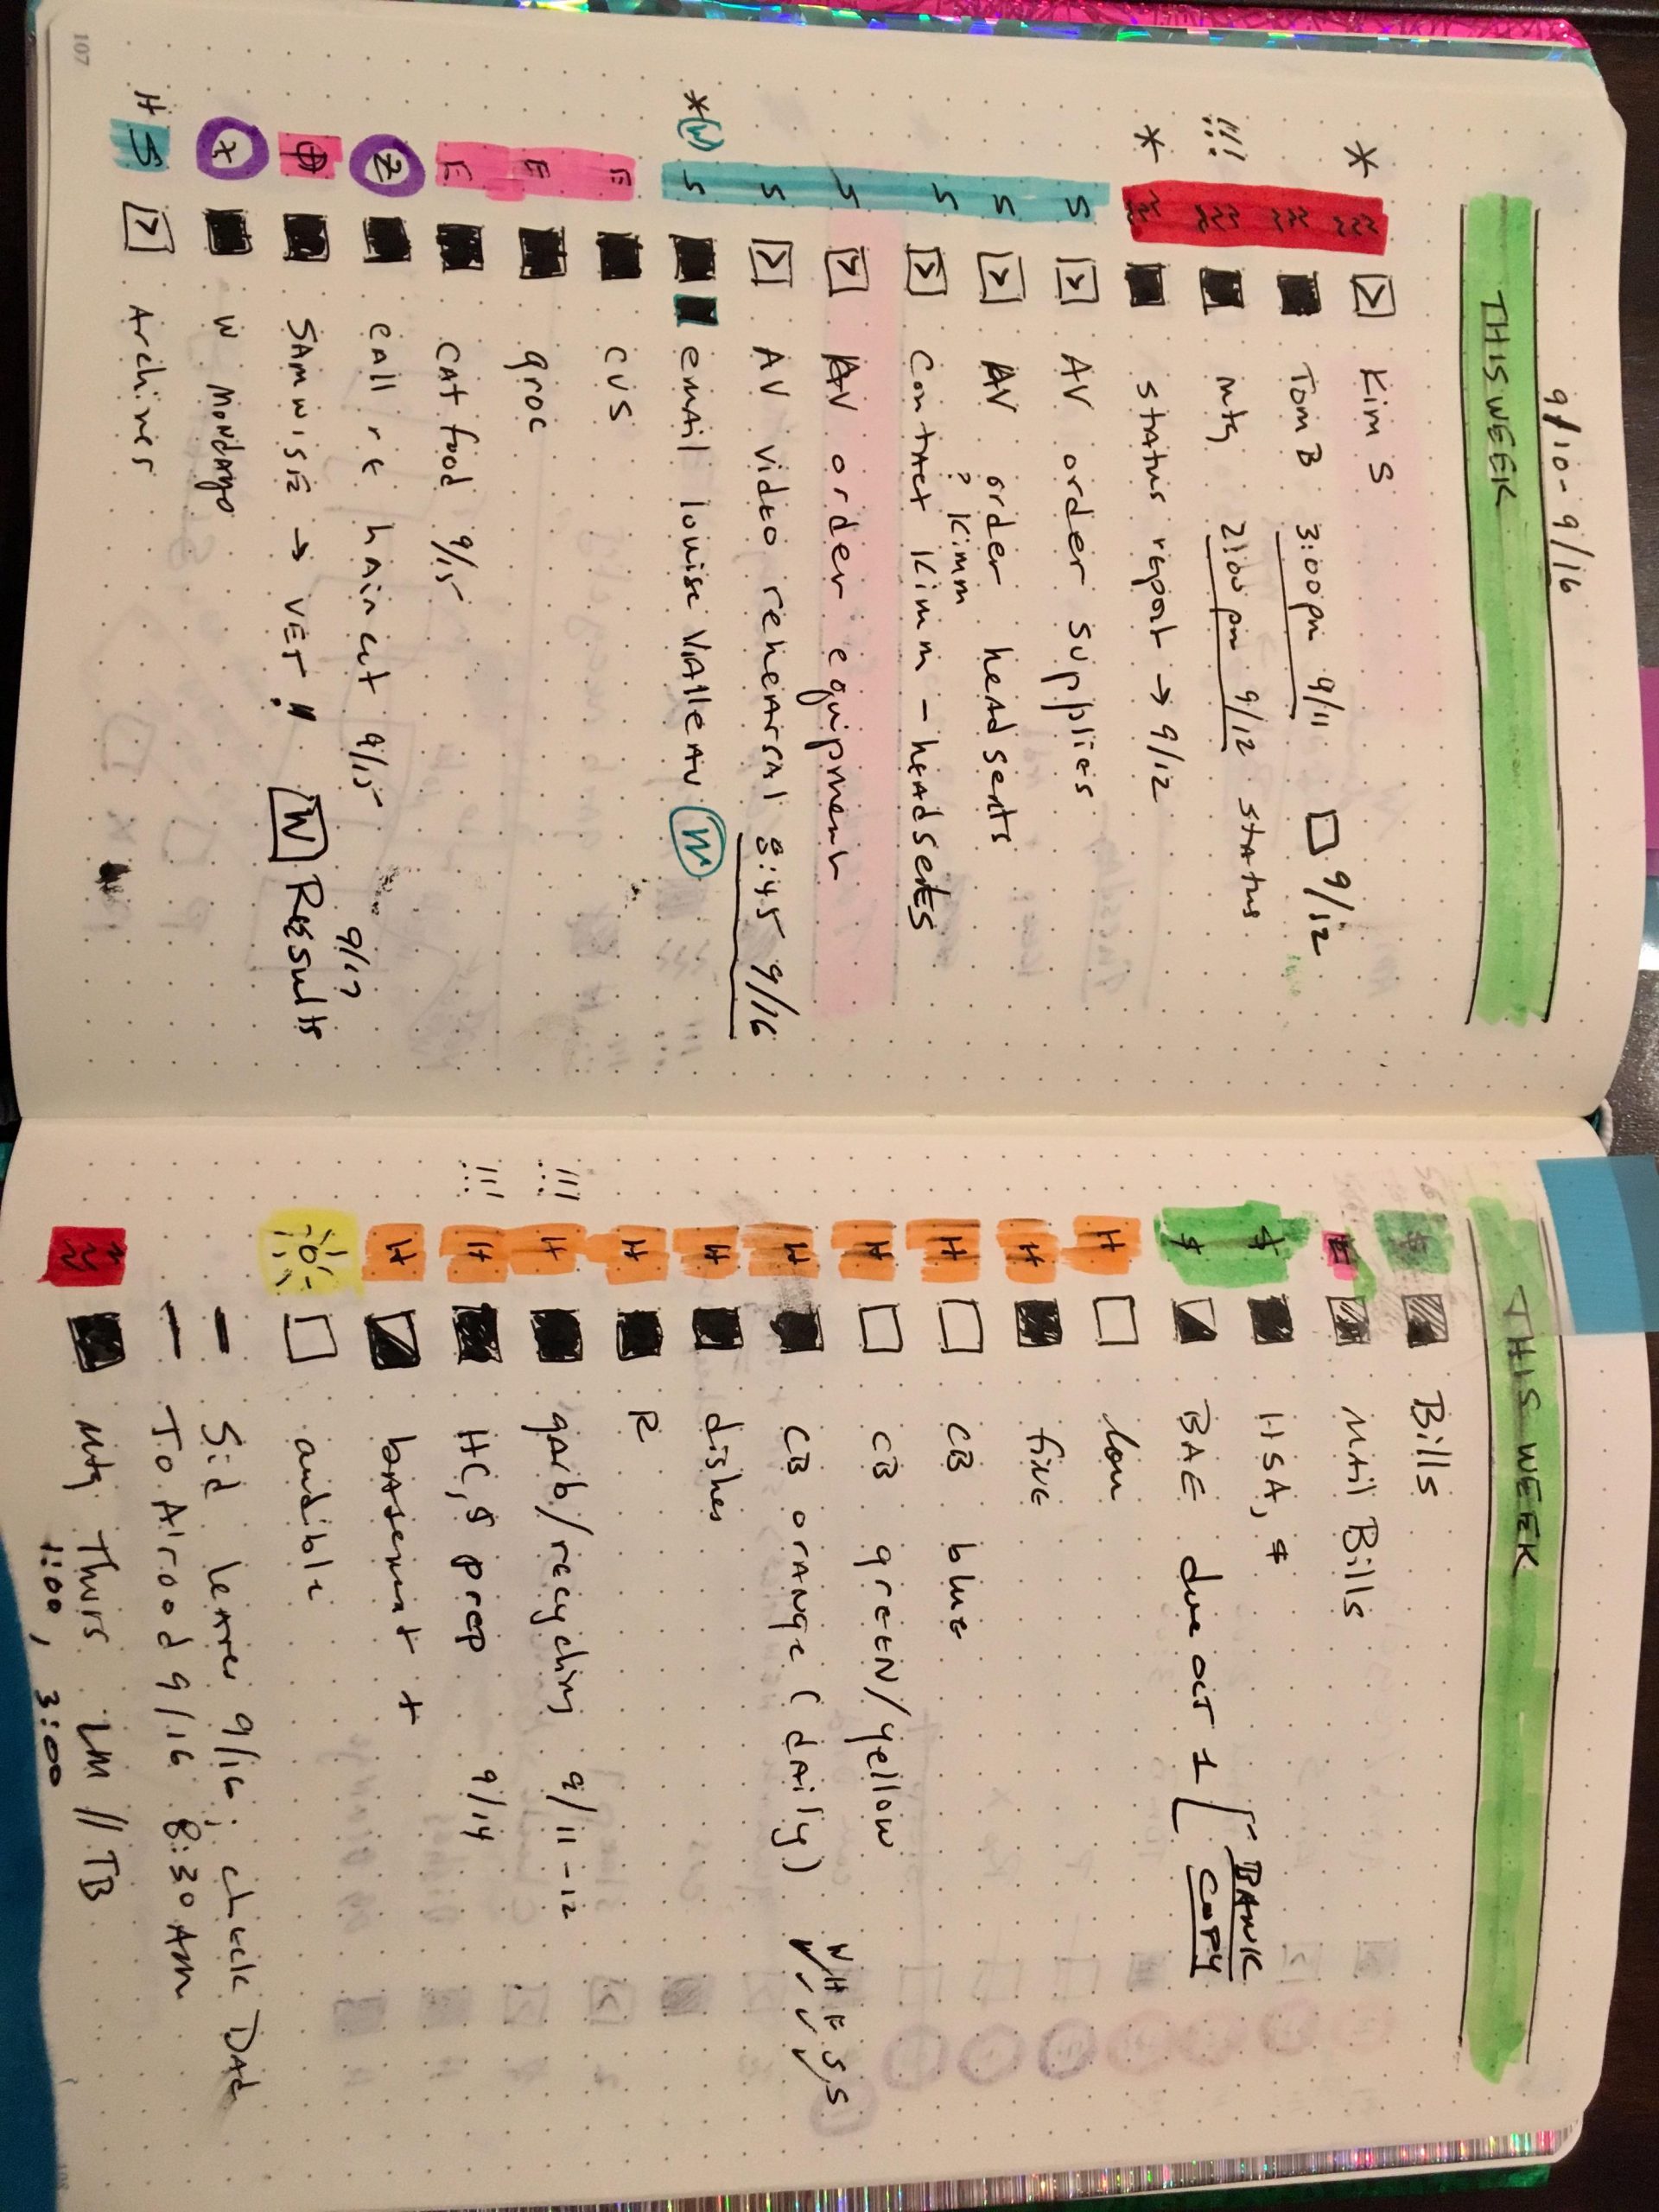 9/10-9/16
THIS WEEK
* Kim S
Tom B 3:00pm 9/11 9/12
!!! mtg 2:00 pm 9/12 status
* status report → 9/12
S AV order supplies
S AV order headsets
? Kimm
S contact Kimm - headsets
S AV order equipment
S AV video rehearsal 8:45 9/16
* W S email louise VAlleAu W
E CVS
E groc
E CAt food 9/15
2 CAll re haircut 9/15
SAMWISE → VET!! W Results 9/17
+ W Mondayo
H S Archives
107
THIS WEEK
$ Bills
E Mtil Bills
$ HSA, $
$ BAE due OCT 1 BANK
COPY
H lawn
H fine
H CB blue
H CB grEEN/yellow
H CB orANge (dAily) W H F S S
H dishes
H R
!!! H gArb/recycling 9/11-12
!!! H HC,S prep 9/14
H bAsement +
Audible
- Sid leAves 9/16; check DAd
- To Alrood 9/16 8:30 Am
Mtg Thurs LM // TB
1:00, 3:00